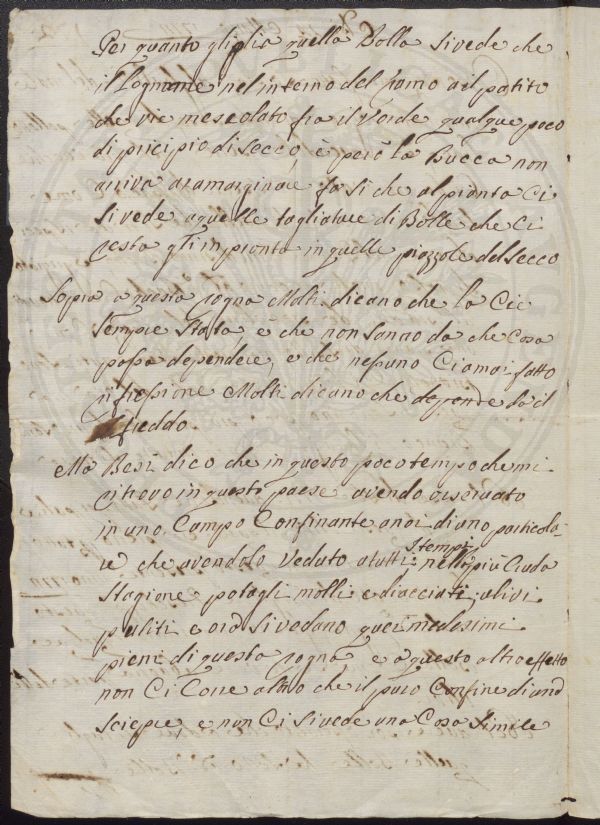 Per quanto gli piglia quella Bolla si vede che
il Legname nel interno del ramo a il patito
che vie mescolato fra il Verde qualque poco
di pricipio di secco, è però la Bucca non
arriva a ramarginare fa si che al pianta Ci
si vede a quelle tagliature di Bolle che Ci
resta gli inpronta in quelle piazzole del secco
Sopra a questa rogna Molti dicano che la Cie
Sempre Stata, è che non sanno da che Cosa
possa dependere, e che nessuno Ci a mai fatto
rifressione Molti dicano che depende da il
freddo.
Ma Besi dico che in questo poco tempo che mi
ritrovo in questo paese avendo osservato
in uno Campo Confinante a noi di uno particola-
re che avendolo veduto a tutti i tempi nella più Cruda
Stagione potagli molli e diacciati, ulivi
puliti e ora si vedano quei medesimi
pieni di questa rogna e a questo altro effetto
non Ci Corre altro che il puro Confine di una
sciepre, e non Ci si vede una Cosa Simile